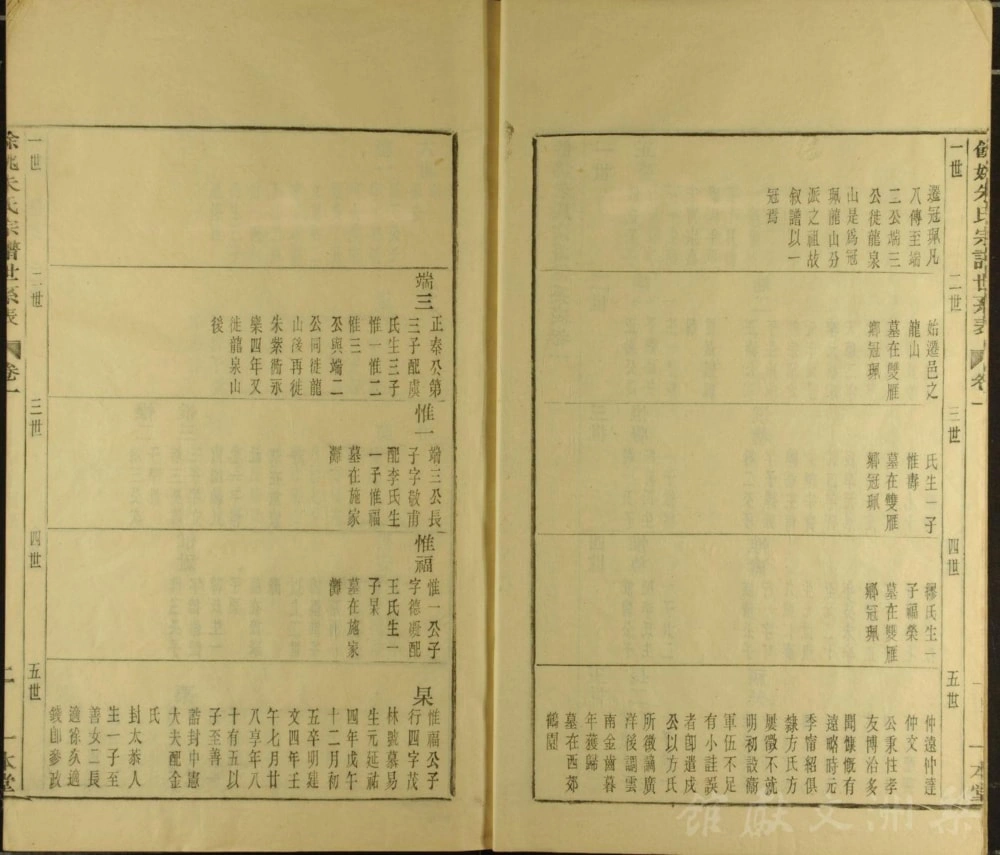 餘姚朱氏宗譜世系表
卷一
一世
二世
三世
四世
五世
一本堂
遷冠珮凡
八傳至端
三公端三
公徙龍泉
山是為冠
珮龍山分
派之祖故
叙譜以一
冠焉
始遷邑之
龍山
墓在雙雁
鄉冠珮
氏生一子
惟壽
墓在雙雁
鄉冠珮
繆氏生一
子福榮
墓在雙雁
鄉冠珮
仲遠仲達
仲文
公秉性孝
友博洽多
聞慷慨有
遠略時元
季甯紹俱
隸方氏方
屢徵不就
明初設衛
軍伍不足
有小註誤
者卽遣戍
公以方氏
所徵謫廣
洋後調雲
南金齒暮
年獲歸
墓在西郊
鶴園
端三
正奉公第
三子配虞
氏生三子
惟一惟二
惟三
公與端二
公同徙龍
山後再徙
朱紫衖永
樂四年又
徙龍泉山
後
惟一
端三公長
子字敬甫
配李氏生
一子惟福
墓在施家
㵎
惟福
惟一公子
字德凝配
王氏生一
子杲
墓在施家
杲
惟福公子
行四字茂
林號慕易
生元延祐
四年戊午
十二月初
五卒明建
文四年壬
午七月廿
八享年八
十有五以
子至善
誥封中憲
大夫配金
氏
封太恭人
生一子至
善女二長
適徐次適
錢郎參政
一世
二世
三世
四世
五世
餘姚朱氏宗譜世系表
卷一
二
一本堂